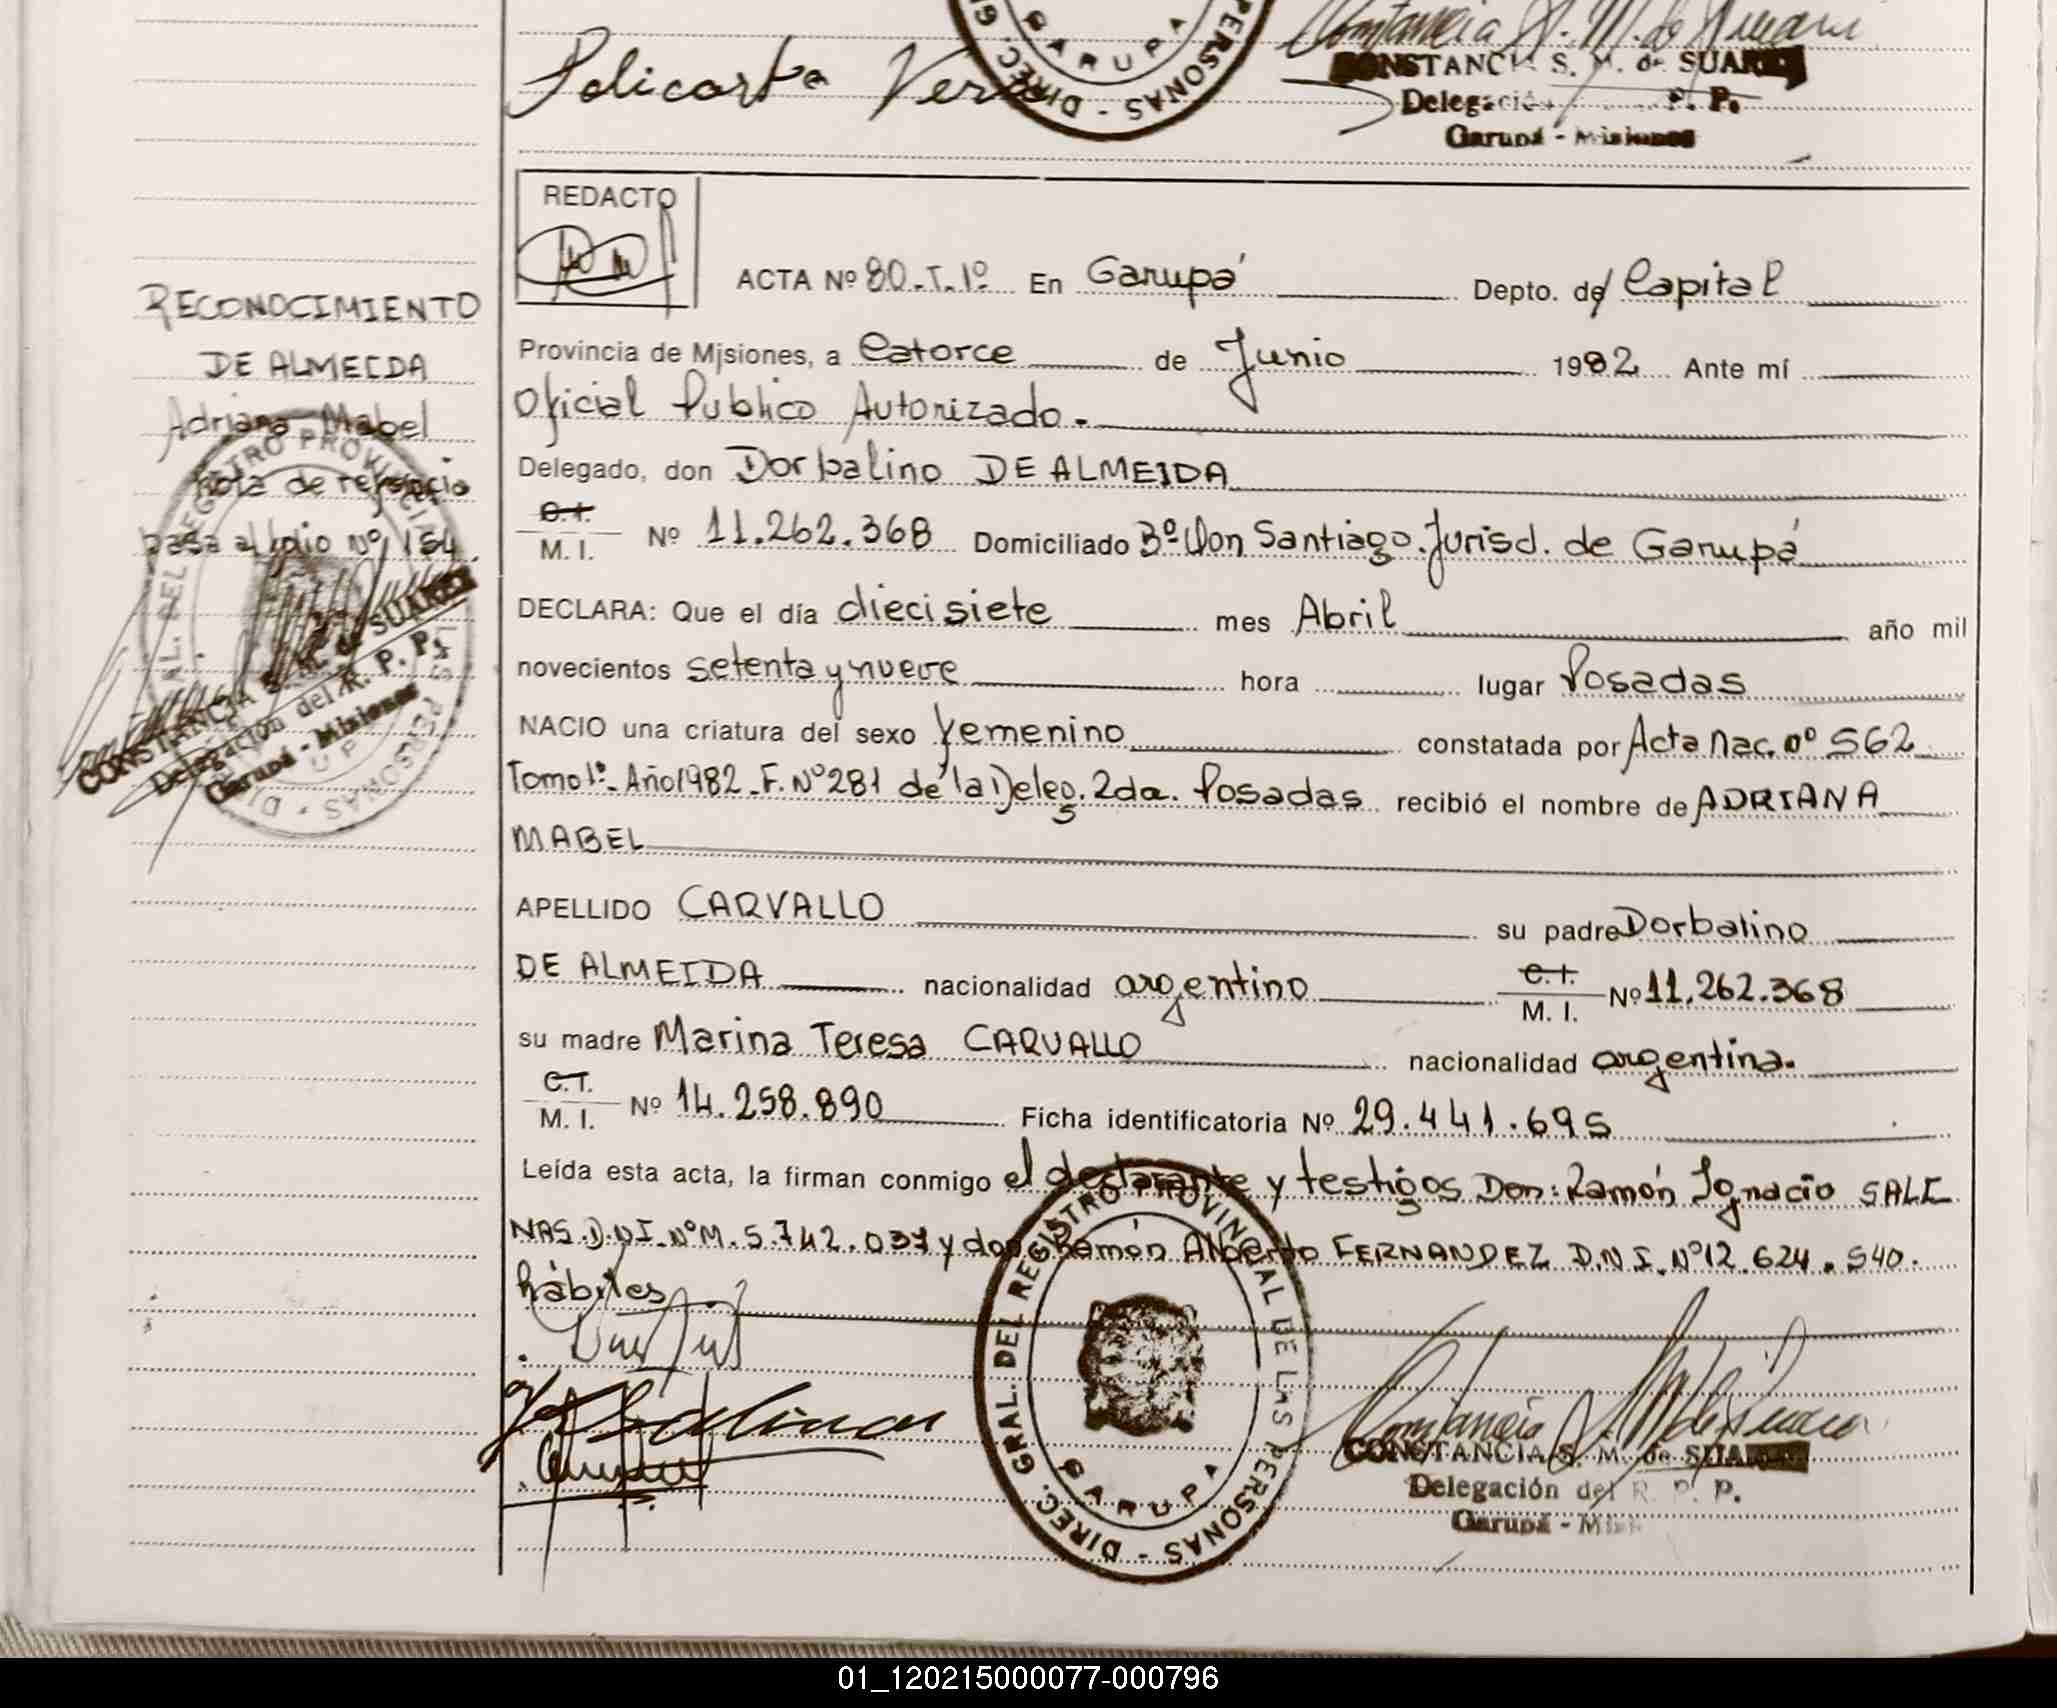 Policarta Vera
GARUPA
DIREC. G
PERSONAS -
Constancia S. M. de Suarez
CONSTANCIA S. M. de SUAREZ
Delegación P. P.
Garupá - Misiones
REDACTO
RECONOCIMIENTO
DE ALMEIDA
Adriana Mabel
nota de referencia
pasa al folio Nº 154.
CONSTANCIA S. M. de SUAREZ
Delegación del R. P. P.
Garupá - Misiones
ACTA Nº 80.T.1º En Garupá Depto. de Capital
Provincia de Misiones, a Catorce de Junio 1982 Ante mí
Oficial Publico Autorizado.
Delegado, don Dorbalino DE ALMEIDA
C.I.
M. I. Nº 11.262.368 Domiciliado Bº Don Santiago. Jurisd. de Garupá
DECLARA: Que el día diecisiete mes Abril año mil
novecientos setenta y nueve hora lugar Posadas
NACIO una criatura del sexo femenino constatada por Acta Nac. nº 562
Tomo 1º. Año 1982. F. Nº 281 de la Deleg. 2da. Posadas recibió el nombre de ADRIANA
MABEL
APELLIDO CARVALLO su padre Dorbalino
DE ALMEIDA nacionalidad argentino C.I.
M. I. Nº 11.262.368
su madre Marina Teresa CARVALLO nacionalidad argentina.
C.I.
M. I. Nº 14.258.890 Ficha identificatoria Nº 29.441.695
Leída esta acta, la firman conmigo el declarante y testigos Don: Ramón Ignacio SALI
NAS. D.N.I. Nº M. 5.742.037 y don Ramón Alberto FERNANDEZ D.N.I. Nº 12.624.540.
hábiles
Salinas
DIREC. GRAL. DEL REGISTRO PROVINCIAL DE LAS PERSONAS -
GARUPA
Constancia S. M. de Suarez
CONSTANCIA S. M. de SUAREZ
Delegación del R. P. P.
Garupá - Mis
01_120215000077-000796